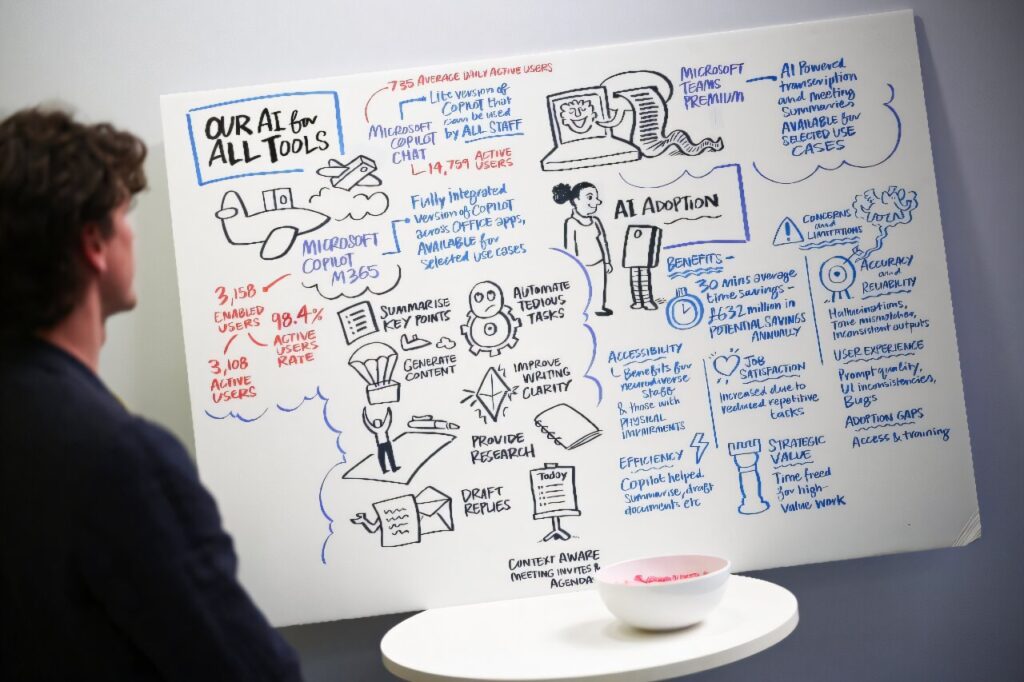 OUR AI for
ALL TOOLS
735 AVERAGE DAILY ACTIVE USERS
MICROSOFT
COPILOT
CHAT
Lite version of
COPILOT that
can be used
by ALL STAFF
14,759 ACTIVE
USERS
MICROSOFT
COPILOT
M365
Fully integrated
version of COPILOT
across OFFICE apps,
AVAILABLE for
selected use cases
3,158
ENABLED
USERS
98.4%
ACTIVE
USERS
RATE
3,108
ACTIVE
USERS
SUMMARISE
KEY POINTS
AUTOMATE
TEDIOUS
TASKS
GENERATE
CONTENT
IMPROVE
WRITING
CLARITY
PROVIDE
RESEARCH
DRAFT
REPLIES
Today
CONTEXT AWARE
MEETING INVITES &
AGENDA
MICROSOFT
TEAMS
PREMIUM
AI Powered
transcription
and meeting
summaries
AVAILABLE for
SELECTED USE
CASES
AI ADOPTION
BENEFITS –
30 mins average
time savings –
£632 million in
POTENTIAL SAVINGS
ANNUALLY
ACCESSIBILITY
Benefits for
neurodiverse
staff
& those with
PHYSICAL
IMPAIRMENTS
JOB
SATISFACTION
Increased due to
reduced repetitive
tasks
EFFICIENCY
Copilot helped
summarise, draft
documents etc
STRATEGIC
VALUE
Time freed
for high-
value work
CONCERNS
and
LIMITATIONS
ACCURACY
and
RELIABILITY
Hallucinations,
Tone mismatches,
inconsistent outputs
USER EXPERIENCE
Prompt quality,
UI inconsistencies,
Bugs
ADOPTION GAPS
Access & training